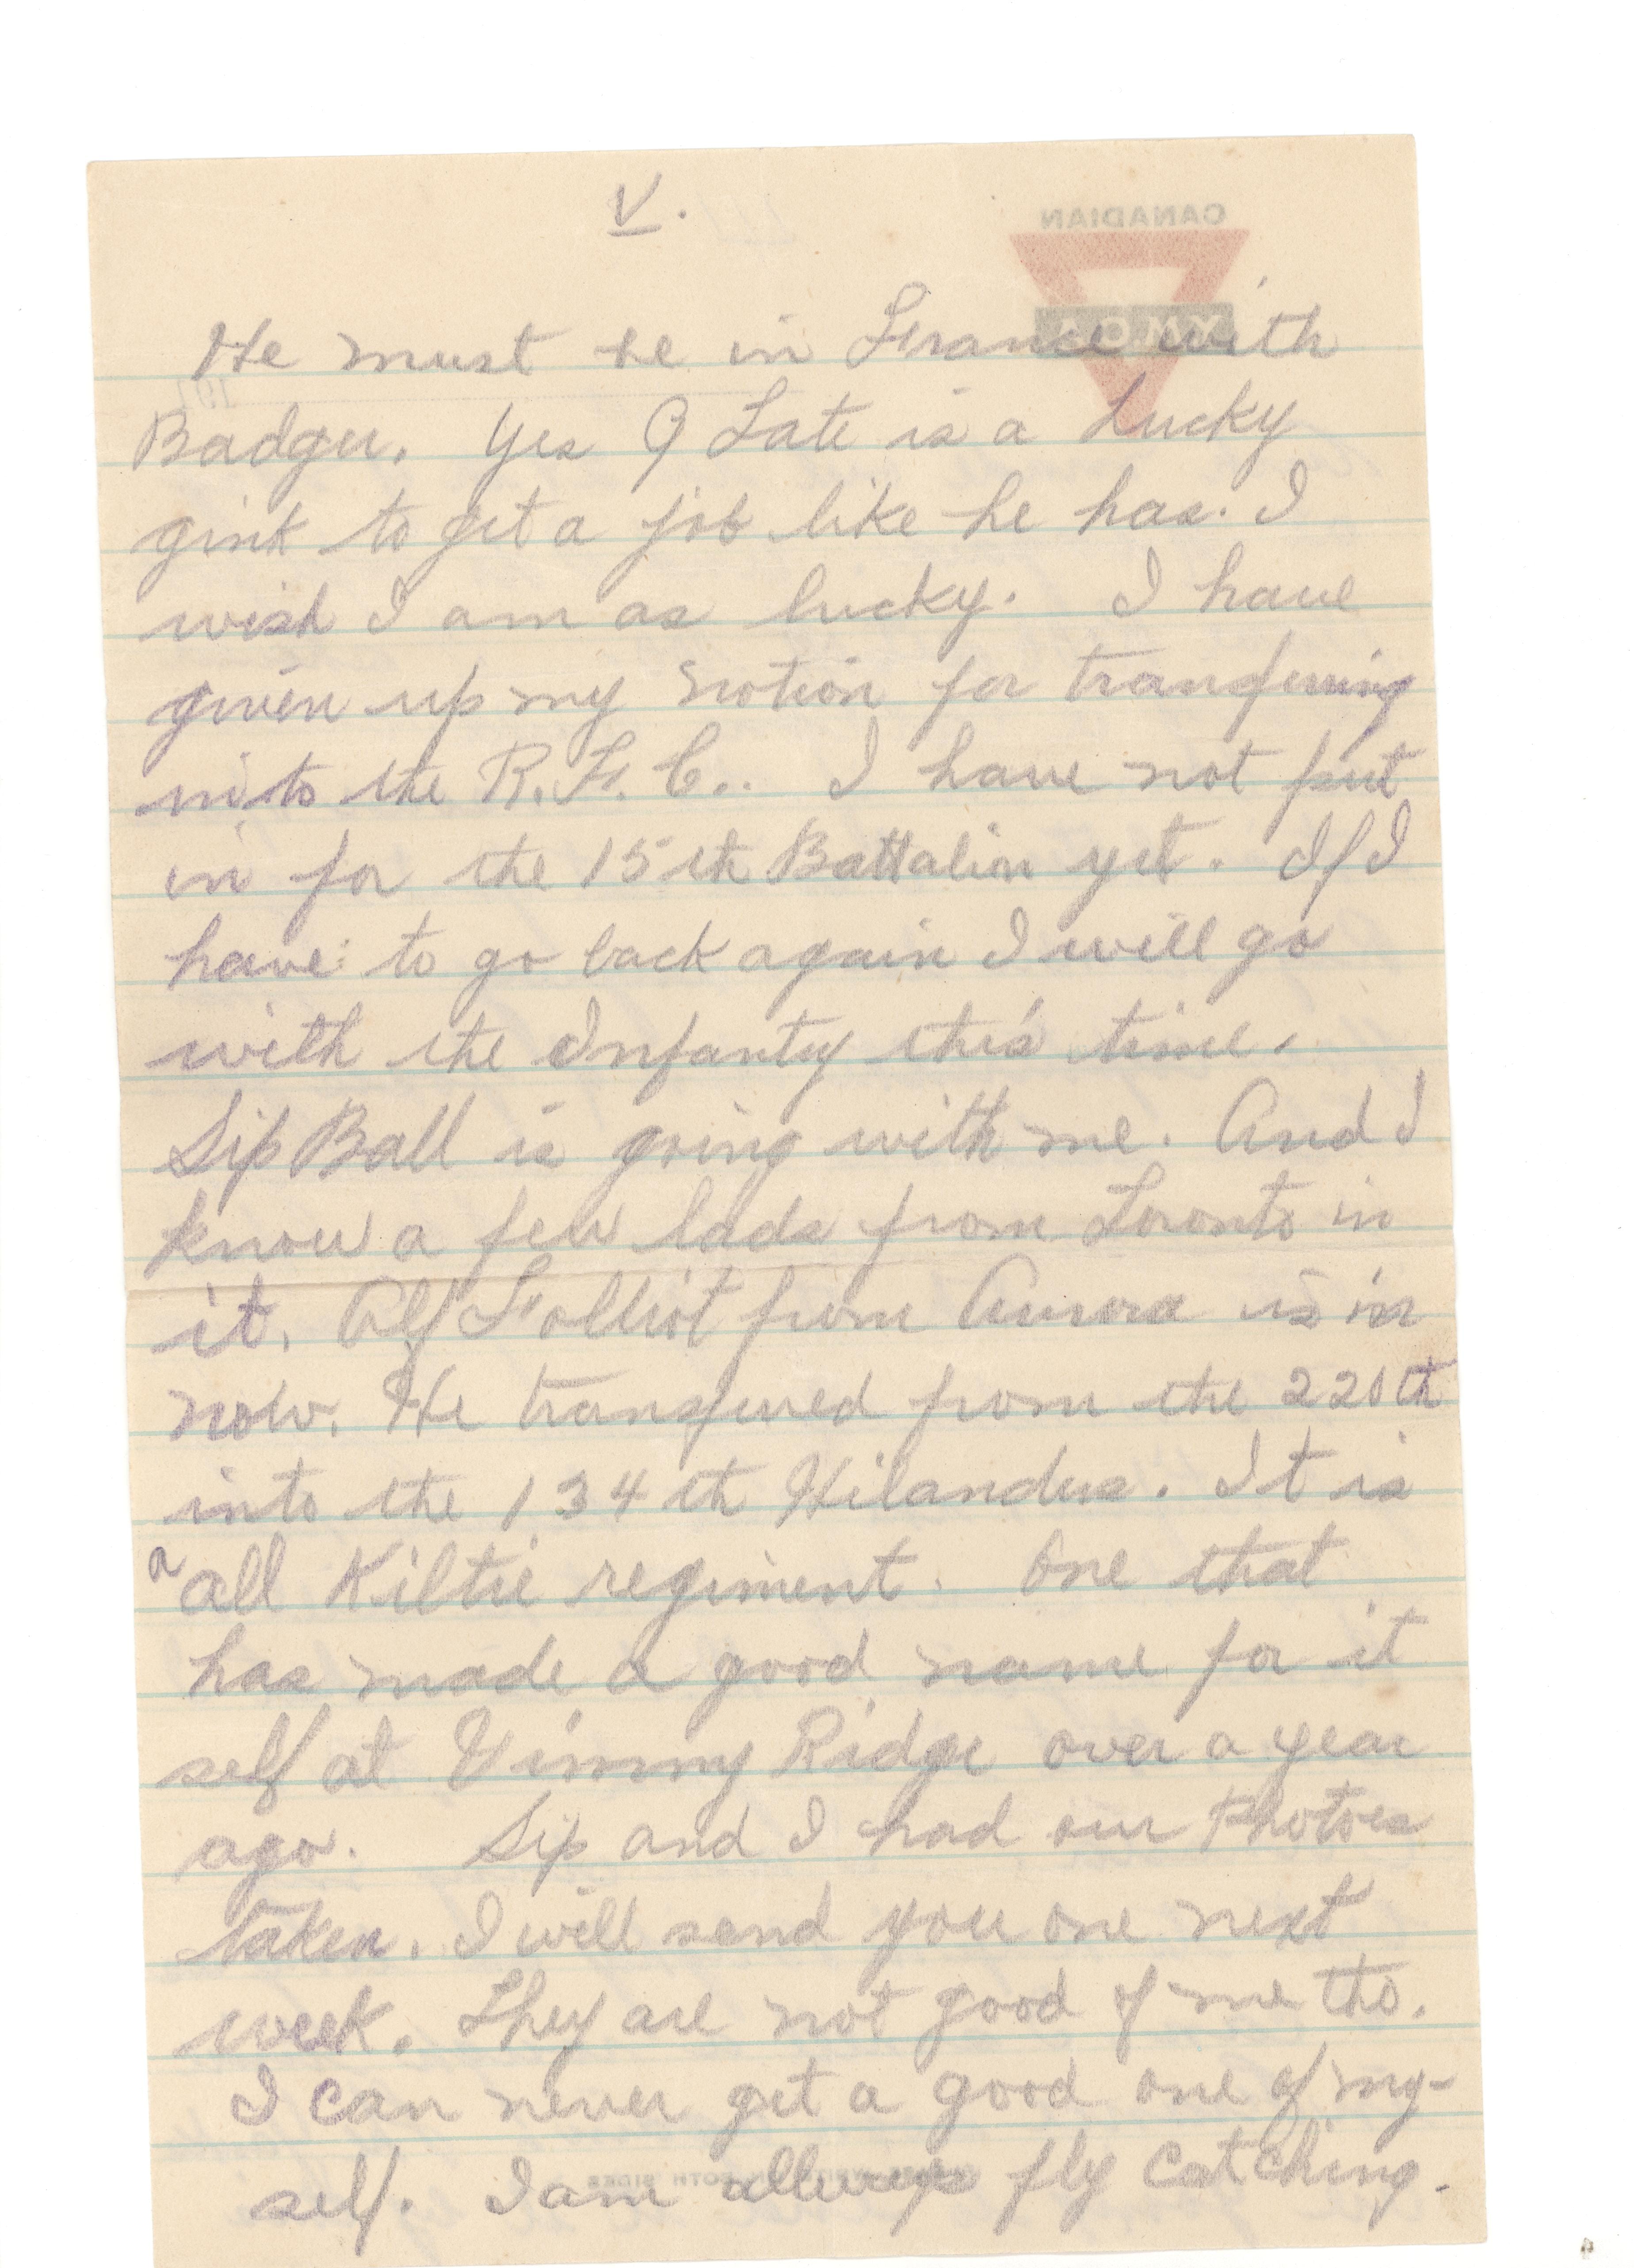 V.
CANADIAN
YMCA
191
He must be in France with
Badger. Yes G Late is a lucky
gink to get a job like he has. I
wish I am as lucky. I have
given up my notion for transfering
into the R. F. C.. I have not put
in for the 15th Battalion yet. If I
have to go back again I will go
with the Infanty this time.
Sip Ball is going with me. And I
know a few lads from Toronto in
it. Alf Folliot from Aurora is in
now. He transfered from the 220th
into the 134th Hilanders. It is
a all Kiltie regiment. One that
has made a good name for it
self at Vimmy Ridge over a year
ago. Sip and I had our Photoes
taken. I will send you one next
week. They are not good of me tho.
I can never get a good one of my-
self. I am allways fly catching.
BOTH SIDES